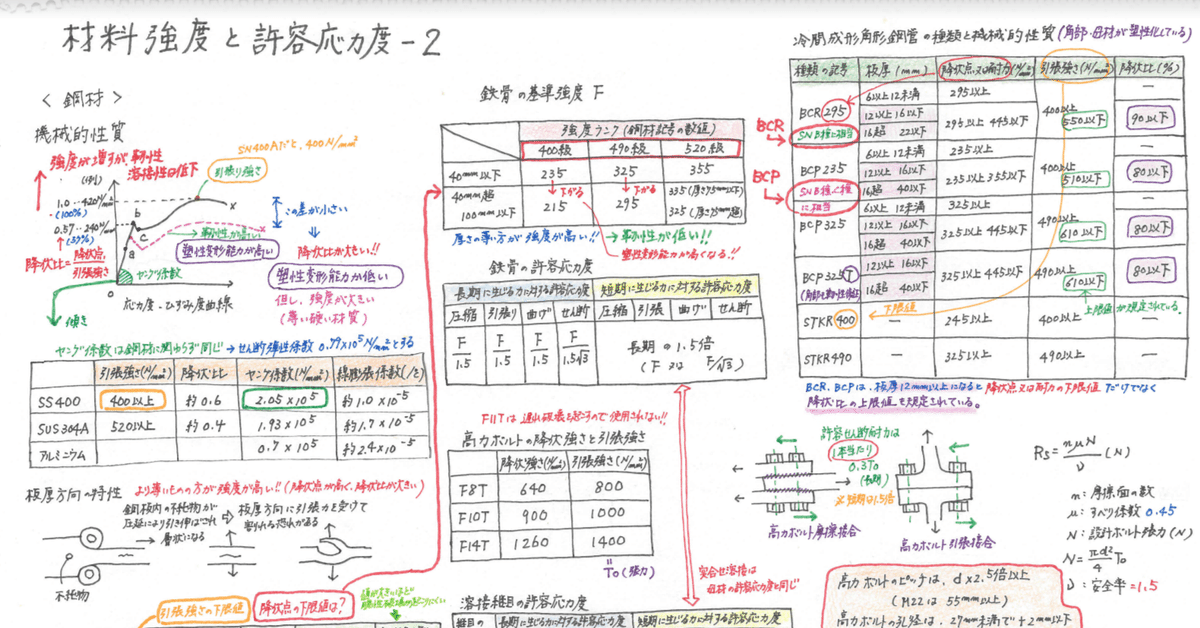 材料強度と許容応力度-2
<鋼材>
機械的性質
強度が増すが靭性
溶接性は低下
SN400Aだと、400N/mm²
引張り強さ
1.0‥420N/mm²
(100%)
0.57‥240N/mm²
(57%)
降伏比=降伏点/引張強さ
この差が小さい
降伏比が大きい!!
塑性変形能力が高い
塑性変形能力が低い
但し、強度が大きい
(薄い硬い材質)
ヤング係数
傾き
応力度-ひずみ度曲線
ヤング係数は鋼材に関わらず同じ→せん断弾性係数 0.79×10⁵N/mm²とする
引張強さ(N/mm²) 降伏比 ヤング係数(N/mm²) 線膨張係数(1/℃)
SS400 400以上 約0.6 2.05×10⁵ 約1.0×10⁻⁵
SUS304A 520以上 約0.4 1.93×10⁵ 約1.7×10⁻⁵
アルミニウム 0.7×10⁵ 約2.4×10⁻⁵
板厚方向の特性 より薄いものの方が強度が高い!!(降伏点が高く、降伏比が大きい)
鋼板内の不純物が
圧延により引き伸ばされ
層状になる
板厚方向に引張力を受けて
割れる恐れがある
不純物
引張強さの下限値
降伏点の下限値は?
鉄骨の基準強度 F
強度ランク(鋼材記号の数値)
400級 490級 520級
40mm以下 235 325 355
40mm超
100mm以下
下がる 215
下がる 295
335(厚さ75mm以下)
325(厚さ75mm超)
厚さの薄い方が強度が高い!!→靭性が低い!!
塑性変形能力が高くなる!!
鉄骨の許容応力度
長期に生じる力に対する許容応力度 短期に生じる力に対する許容応力度
圧縮 引張り 曲げ せん断 圧縮 引張 曲げ せん断
F/1.5 F/1.5 F/1.5 F/1.5√3
長期の1.5倍
(F又は F/√3)
F11Tは遅れ破壊を起こすので使用されない!!
高力ボルトの降伏強さと引張強さ
降伏強さ(N/mm²) 引張強さ(N/mm²)
F8T 640 800
F10T 900 1000
F14T 1260 1400
T₀(張力)
突合せ溶接は
母材の許容応力度と同じ
溶接継目の許容応力度
継目の 長期に生じる力に対する許容応力度 短期に生じる力に対する許容応力度
冷間成形角形鋼管の種類と機械的性質(角部・母材が塑性化している)
種類の記号 板厚(mm) 降伏点又は耐力(N/mm²) 引張強さ(N/mm²) 降伏比(%)
BCR
BCP
BCR295
SNB種に相当
6以上12未満 295以上 —
12以上16以下
16超 22以下
295以上 445以下
400以上
550以下
90以下
BCP235
SNB種、C種
に相当
6以上12未満 235以上 —
12以上16以下
16超 40以下
235以上355以下
400以上
510以下
80以下
BCP325
6以上12未満 325以上 —
12以上16以下
16超 40以下
325以上 445以下
490以上
610以下
80以下
BCP325T
12以上16以下
16超 40以下
325以上 445以下
490以上
610以下
80以下
下限値
上限値が規定されている。
STKR400 — 245以上 400以上 —
STKR490 — 325以上 490以上 —
BCR、BCPは、板厚12mm以上になると降伏点又は耐力の下限値だけでなく
降伏比の上限値も規定されている。
許容せん断耐力は
1本当たり
0.3T₀
(長期)
※短期は1.5倍
高力ボルト摩擦接合
高力ボルト引張接合
Rs=nμN/ν (N)
n:摩擦面の数
μ:すべり係数 0.45
N:設計ボルト張力(N)
N=πd²/4 T₀
ν:安全率=1.5
高力ボルトのピッチは、d×2.5倍以上
(M22は55mm以上)
高力ボルトの孔径は、27mm未満で+2mm以下